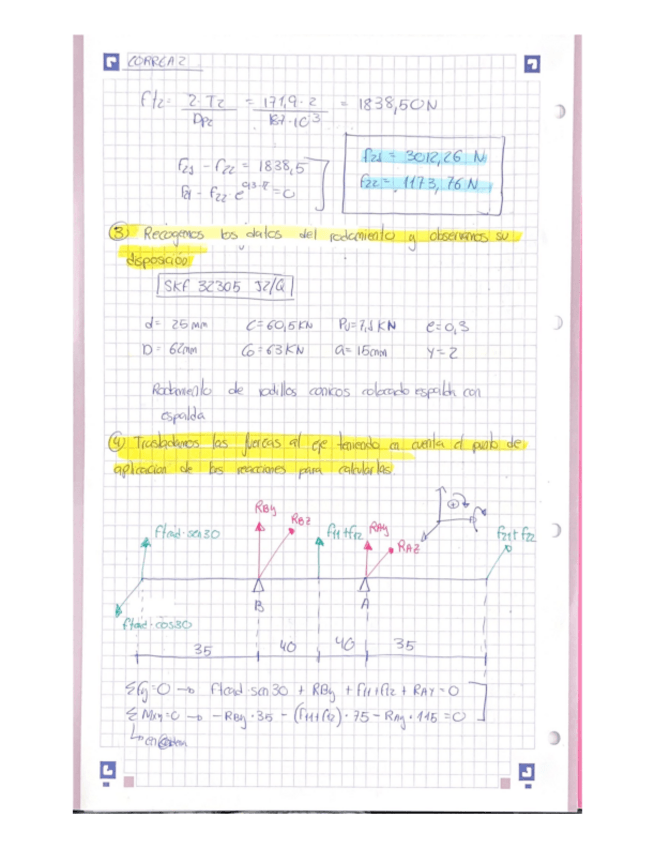 CORREA 2
Ft2 = 2·T2 / Dp2 = 171,9·2 / 187·10^-3 = 1838,50N
F21 - F22 = 1838,5
F21 - F22·e^0,3·π = 0
F21 = 3012,26 N
F22 = 1173,76 N
③ Recogemos los datos del rodamiento y observamos su
disposición
SKF 32305 J2/Q
d= 25mm C=60,5KN Pu=7,1KN e=0,3
D= 62mm C0=63KN a=15mm Y=2
Rodamiento de rodillos conicos colocado espalda con
espalda
④ Trasladamos las fuerzas al eje teniendo en cuenta el punto de
aplicacion de las reacciones para calcularlas.
RBy RBZ
Ftad·sen30 F11+F12 RAy RAZ F21+F22
B A
Ftad·cos30
35 40 40 35
ΣFy=0 → Ftad·sen30 + RBy + F11+F12 + RAY = 0
ΣMxy=0 → -RBy·35 - (F11+F12)·75 - RAy·115 = 0
↳ en